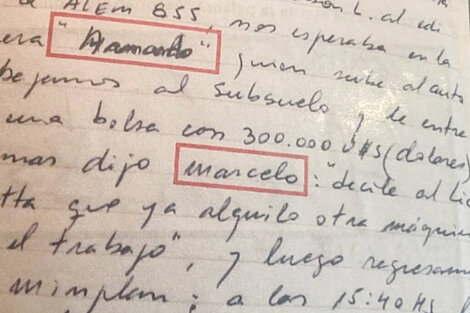 ALEM 855, nos esperaba en la
era "Armando" quien sube al auto
bajamos al Subsuelo y le entre
una bolsa con 300.000 U$S (dolares)
mas dijo Marcelo: "decile al Lic
tta que ya alquilo otra máquin
el trabajo", y luego regresam
minplan; a las 15:40 HS